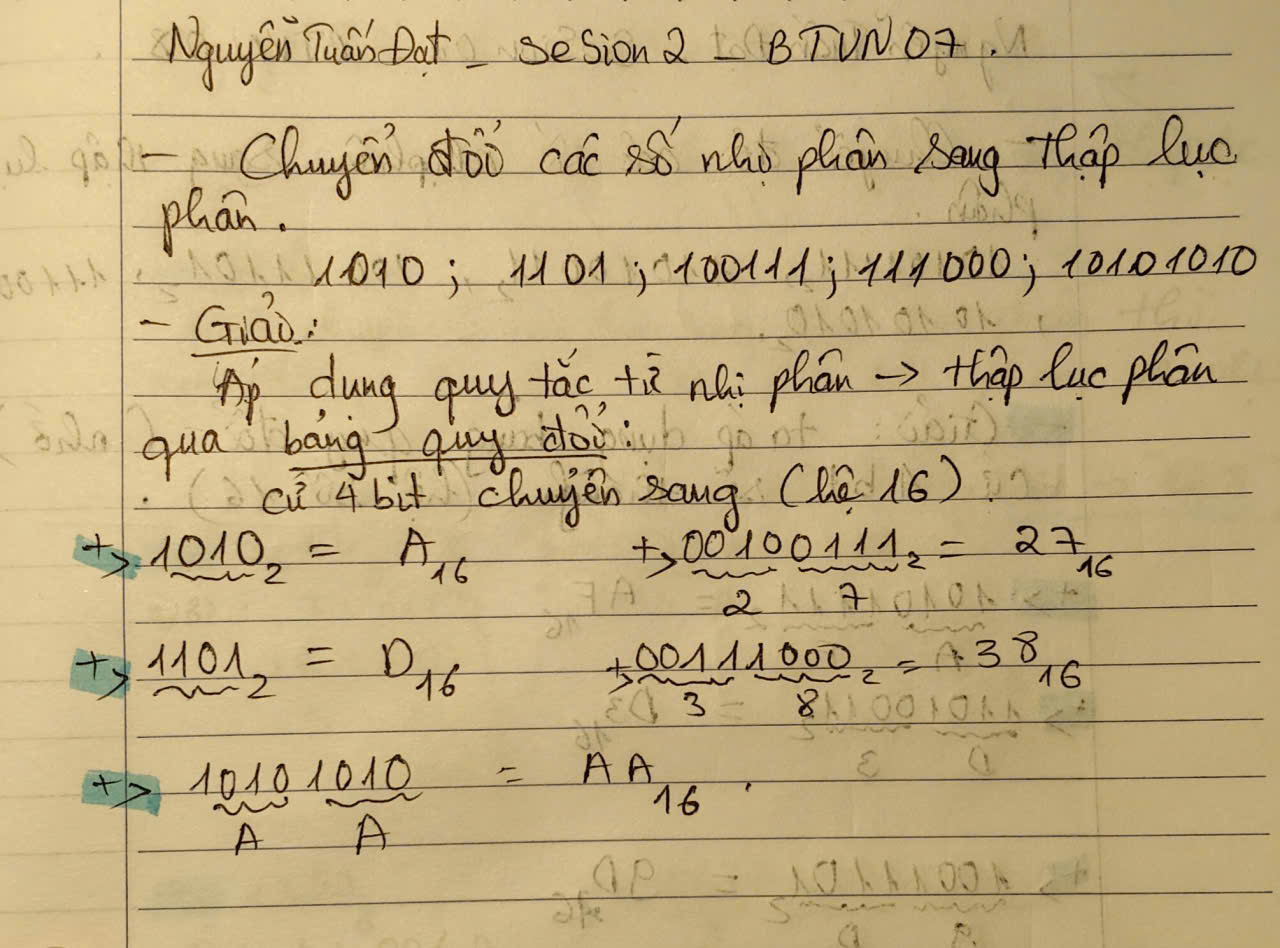 Nguyễn Tuấn Đạt - seSion 2 - BTVN 07.
- Chuyển đổi các số nhị phân sang thập lục
phân.
1010; 1101; 100111; 111000; 10101010
- Giải:
Áp dụng quy tắc từ nhị phân → thập lục phân
qua bảng quy đổi:
cứ 4 bit chuyển sang (hệ 16).
+> 1010₂ = A₁₆ +> 00100111₂ = 27₁₆
2 7
+> 1101₂ = D₁₆ +> 00111000₂ = 38₁₆
3 8
+> 1010 1010 = AA₁₆.
A A